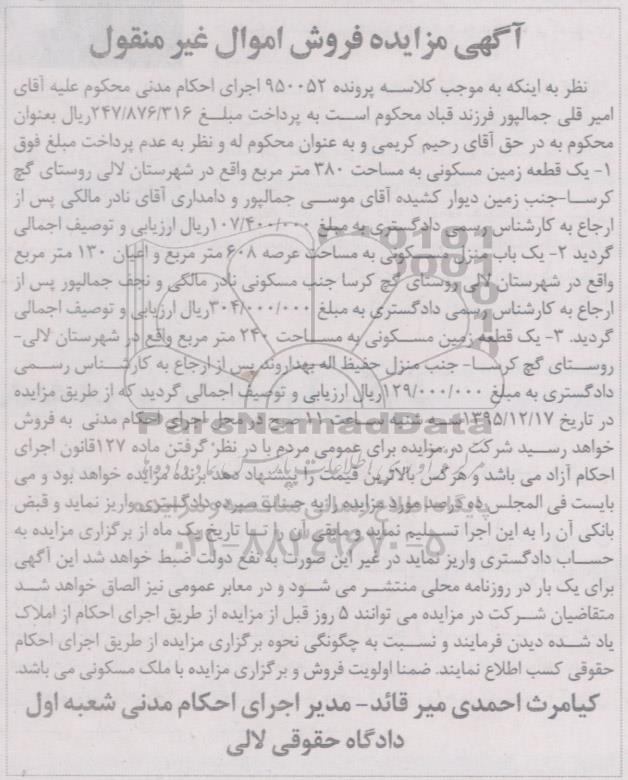 آگهی مزایده فروش اموال غیر منقول
نظر به اینکه به موجب کلاسه پرونده ۹۵۰۰۵۲ اجرای احکام مدنی محکوم علیه آقای
امیر قلی جمالپور فرزند قباد محکوم است به پرداخت مبلغ ۲۴۷/۸۷۶/۳۱۶ریال بعنوان
محکوم به در حق آقای رحیم کریمی و به عنوان محکوم له و نظر به عدم پرداخت مبلغ فوق
۱- یک قطعه زمین مسکونی به مساحت ۳۸۰ متر مربع واقع در شهرستان لالی روستای گچ
کرسا-جنب زمین دیوار کشیده آقای موسی جمالپور و دامداری آقای نادر مالکی پس از
ارجاع به کارشناس رسمی دادگستری به مبلغ ۱۰۷/۴۰۰/۰۰۰ریال ارزیابی و توصیف اجمالی
گردید ۲- یک باب منزل مسکونی به مساحت عرصه ۶۰۸ متر مربع و اعیان ۱۳۰ متر مربع
واقع در شهرستان لالی روستای گچ کرسا جنب مسکونی نادر مالکی و نجف جمالپور پس از
ارجاع به کارشناس رسمی دادگستری به مبلغ ۳۰۴/۰۰۰/۰۰۰ریال ارزیابی و توصیف اجمالی
گردید. ۳- یک قطعه زمین مسکونی به مساحت ۲۴۰ متر مربع واقع در شهرستان لالی-
روستای گچ کرسا- جنب منزل حفیظ اله بهداروند پس از ارجاع به کارشناس رسمی
دادگستری به مبلغ ۱۲۹/۰۰۰/۰۰۰ریال ارزیابی و توصیف اجمالی گردید که از طریق مزایده
در تاریخ ۱۳۹۵/۱۲/۱۷سه شنبه ساعت ۱۱ صبح در محل اجرای احکام مدنی به فروش
خواهد رسید شرکت در مزایده برای عمومی مردم با در نظر گرفتن ماده ۱۲۷قانون اجرای
احکام آزاد می باشد و هرکس بالاترین قیمت را پیشنهاد دهد برنده مزایده خواهد بود و می
بایست فی المجلس ده درصد مورد مزایده را به حساب سپرده دادگستری واریز نماید و قبض
بانکی آن را به این اجرا تسلیم نماید و مابقی آن را تا تاریخ یک ماه از برگزاری مزایده به
حساب دادگستری واریز نماید در غیر این صورت به نفع دولت ضبط خواهد شد این آگهی
برای یک بار در روزنامه محلی منتشر می شود و در معابر عمومی نیز الصاق خواهد شد
متقاضیان شرکت در مزایده می توانند ۵ روز قبل از مزایده از طریق اجرای احکام از املاک
یاد شده دیدن فرمایند و نسبت به چگونگی نحوه برگزاری مزایده از طریق اجرای احکام
حقوقی کسب اطلاع نمایند. ضمنا اولویت فروش و برگزاری مزایده با ملک مسکونی می باشد.
کیامرث احمدی میر قائد- مدیر اجرای احکام مدنی شعبه اول
دادگاه حقوقی لالی
ParsNamadData
۰۲۱-۸۸۳۴۹۶۷۰-۵